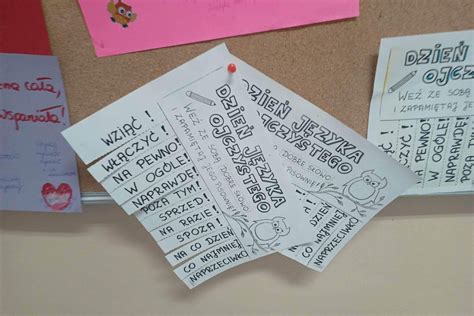 ena cała,
wspaniała!
WZIĄĆ!
WŁĄCZYĆ!
NA PEWNO!
W OGÓLE!
NAPRAWDĘ!
POZA TYM!
SPRZED!
NA RAZIE!
SPOZA!
NA CO DZIEŃ
CO NAJMNIEJ
NAPRZECIWKO
DZIEŃ JĘZYKA
OJCZYSTEGO
WEŹ ZE SOBĄ DOBRE SŁOWO
I ZAPAMIĘTAJ JEGO PISOWNIĘ!
DZIEŃ JĘZYKA
OJCZYSTEGO
DOBRE SŁOWO
PISOWNIĘ!
NA CO DZIEŃ
CO NAJMNIEJ
NAPRZECIWKO
DZIEŃ
OJCZY
WEŹ ZE SOBĄ
I ZAPAMIĘTAJ
WZIĄĆ!
WŁĄCZYĆ!
NA PEWNO!
W OGÓLE!
NAPRAWDĘ!
POZA TYM!